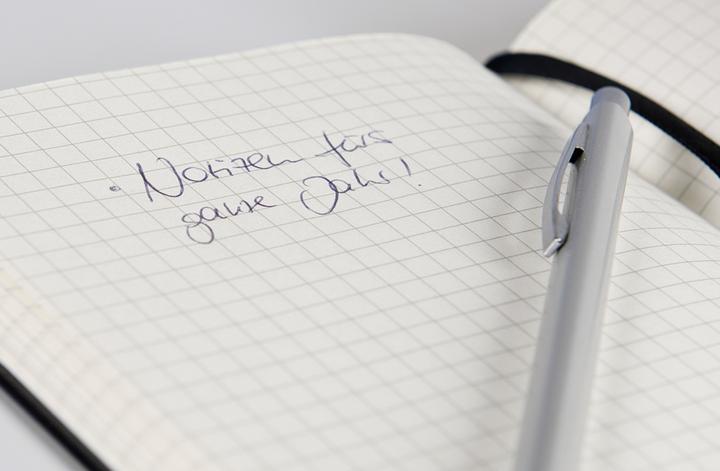 • Notizen fürs
ganze Jahr!